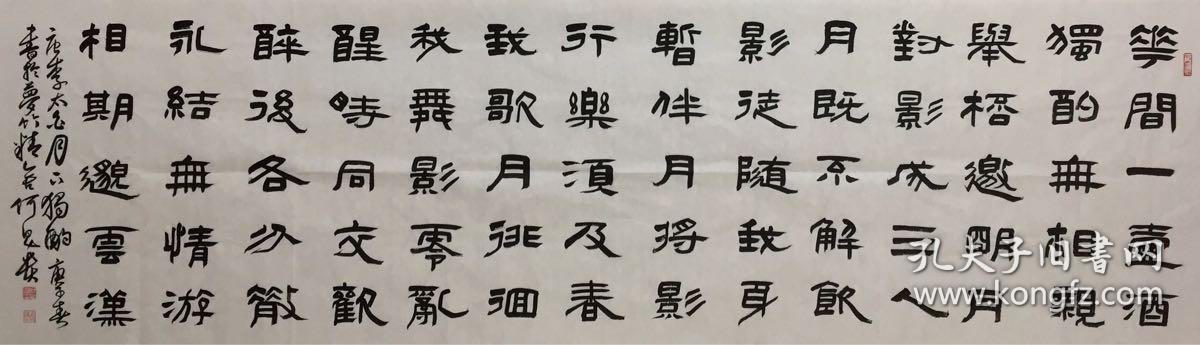 華間一壺酒
獨酌無相親
舉桮邀明月
對影成三人
月既不解飲
影徒隨我身
暫伴月將影
行樂須及春
我歌月徘徊
我舞影零亂
醒時同交歡
醉後各分散
永結無情游
相期邈雲漢
唐李太白月下獨酌
書於夢竹精舍何
孔夫子旧书网
www.kongfz.com